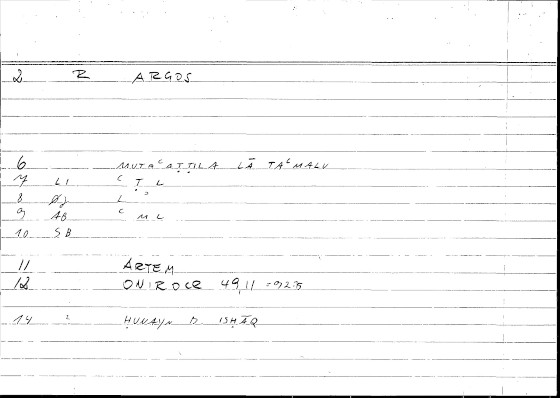 2 R ARGOS
6 MUTAᶜAṬṬILA LĀ TAᶜMALU
7 LI ᶜ Ṭ L
8 Øj L ᵓ
9 AB ᶜ M L
10 SB
11 ARTEM
12 ONIROCR 49,11 =
14 2 ḤUNAYN B ISḤĀQ